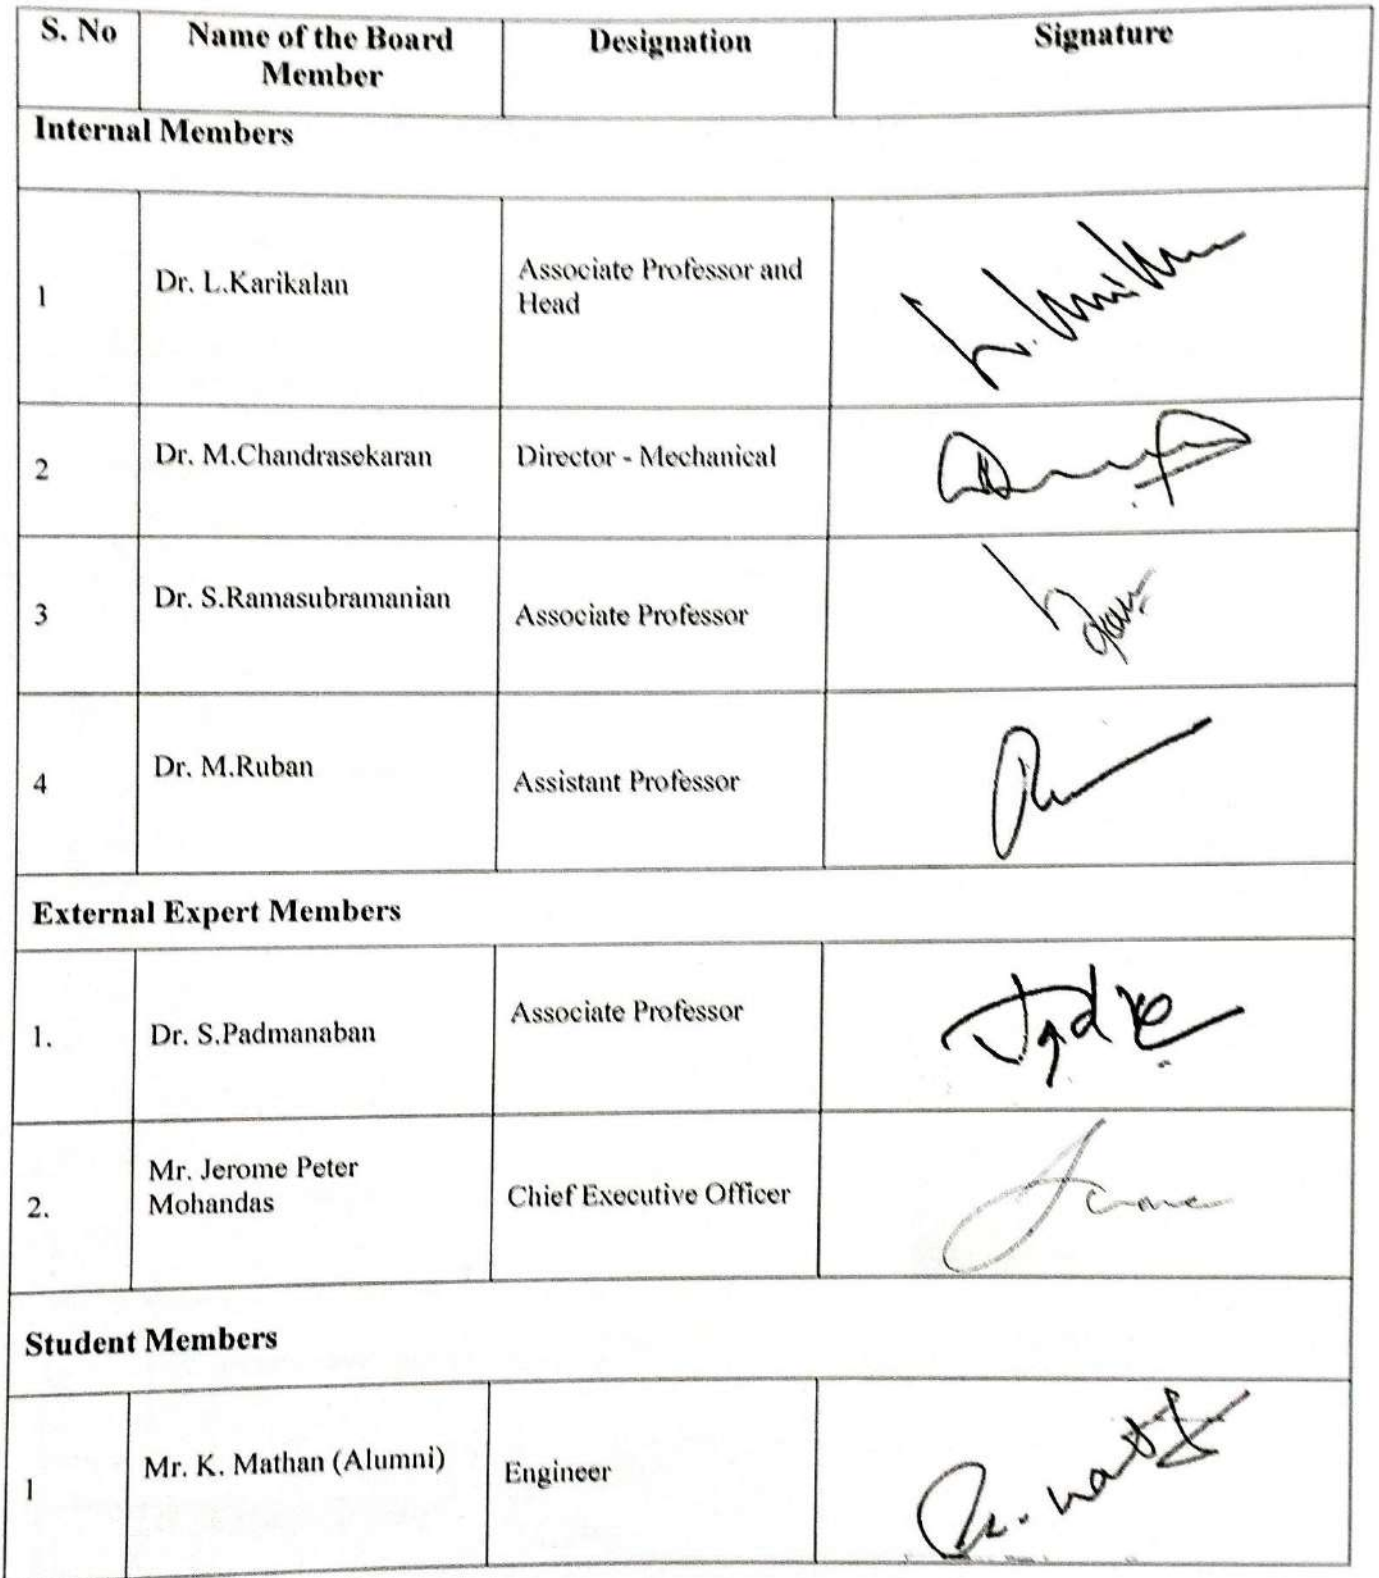 S. No
Name of the Board
Member
Designation
Signature
Internal Members
1
Dr. L.Karikalan
Associate Professor and
Head
2
Dr. M.Chandrasekaran
Director - Mechanical
3
Dr. S.Ramasubramanian
Associate Professor
4
Dr. M.Ruban
Assistant Professor
External Expert Members
1.
Dr. S.Padmanaban
Associate Professor
2.
Mr. Jerome Peter
Mohandas
Chief Executive Officer
Student Members
1
Mr. K. Mathan (Alumni)
Engineer